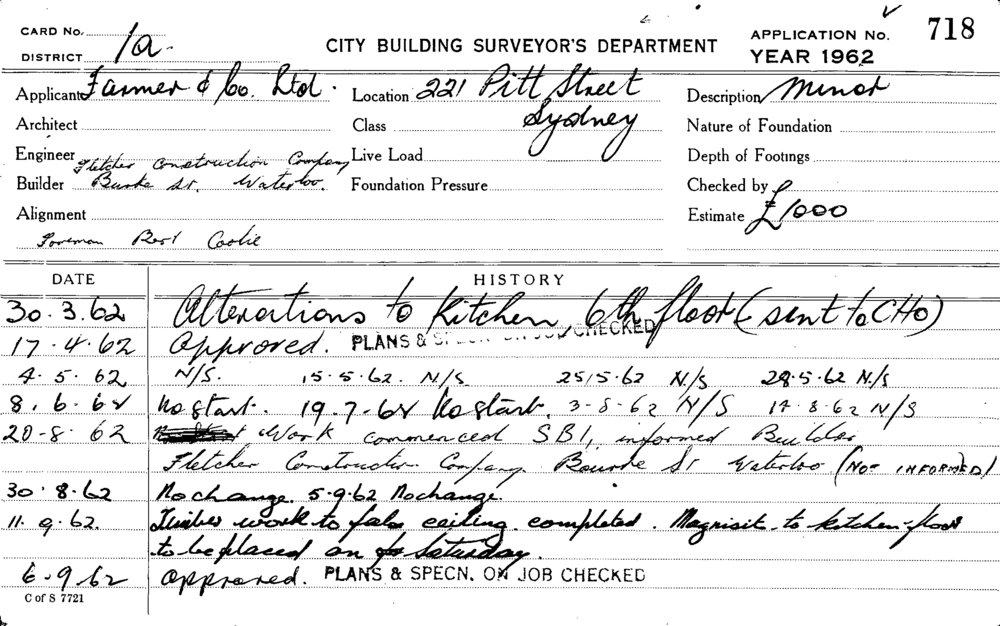 CARD No. CITY BUILDING SURVEYOR'S DEPARTMENT APPLICATION No. 718
DISTRICT 1a. YEAR 1962
Applicant Farmer & Co. Ltd. Location 221 Pitt Street Description Minor
Architect Class Sydney Nature of Foundation
Engineer Fletcher Construction Company Live Load Depth of Footings
Builder Waterloo. Foundation Pressure Checked by
Alignment Estimate £1000
Foreman Bert
DATE HISTORY
30.3.62 Alterations to Kitchen, 6th floor (sent to CHO)
17.4.62 Approved. PLANS & SPECN. ON JOB CHECKED
4.5.62 N/S. 15.5.62. N/S 25/5.62 N/S 29.5.62 N/S
8.6.62 No start. 19.7.62 No start. 3-8-62 N/S 14.8.62 N/S
20-8-62 Work commenced SB1, informed Builder
Fletcher Construction Company Bourke St Waterloo (NOT INFORMED)
30.8.62 No change. 5.9.62 No change.
11.9.62. Timber work to false ceiling completed. Magnisit to kitchen floor
to be placed on Saturday.
6.9.62 Approved. PLANS & SPECN. ON JOB CHECKED
C of S 7721